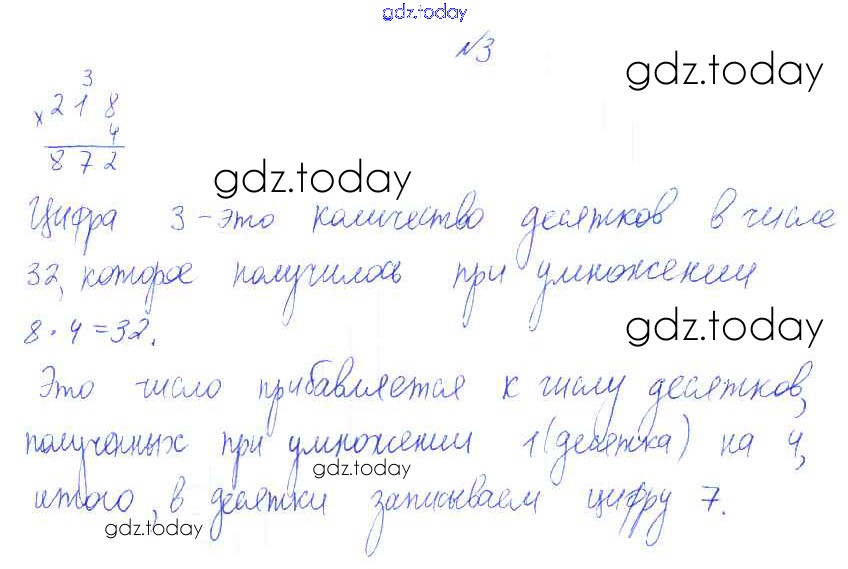 gdz.today
№3
gdz.today
3
× 218
4
872
gdz.today
Цифра 3 - это количество десятков в числе
32, которое получилось при умножении
8 · 4 = 32.
gdz.today
Это число прибавляется к числу десятков,
полученных при умножении 1 (десятка) на 4,
gdz.today
итого, в десятки записываем цифру 7.
gdz.today